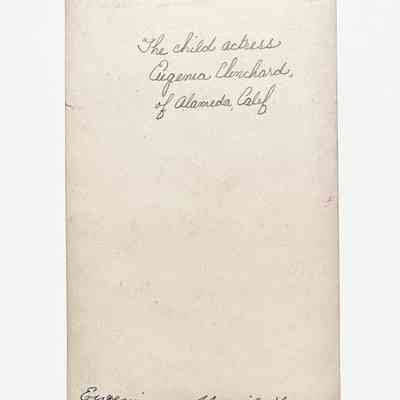 The child actress
Eugenia Clinchard,
of Alameda, Calif